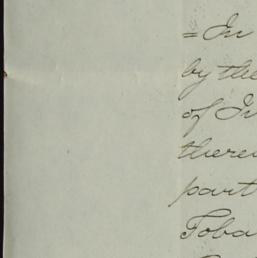 =In
by the
of In
there
part
Toba